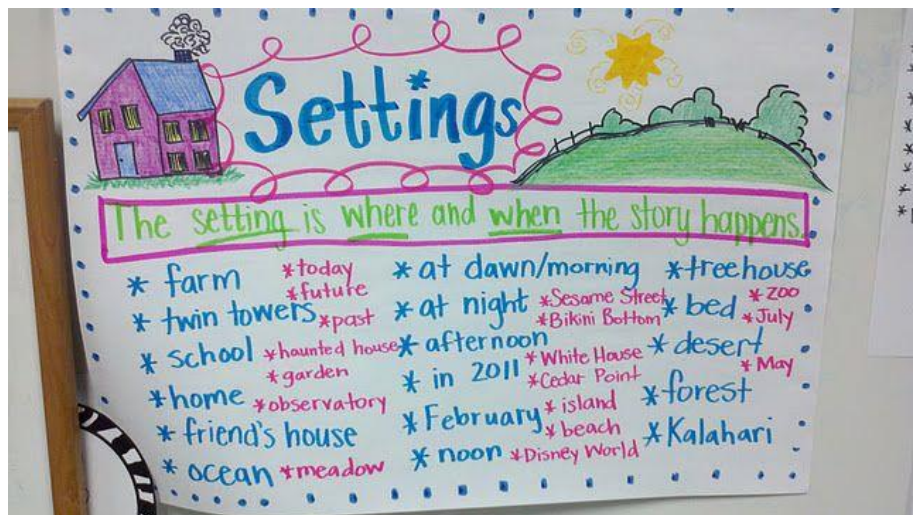 Settings
The setting is where and when the story happens.
* farm
* twin towers
* school
* home
* friend's house
* ocean
* today
* future
* past
* haunted house
* garden
* observatory
* meadow
* at dawn/morning
* at night
* afternoon
* in 2011
* February
* noon
* Sesame Street
* Bikini Bottom
* White House
* Cedar Point
* island
* beach
* Disney World
* treehouse
* bed
* desert
* forest
* Kalahari
* zoo
* July
* May